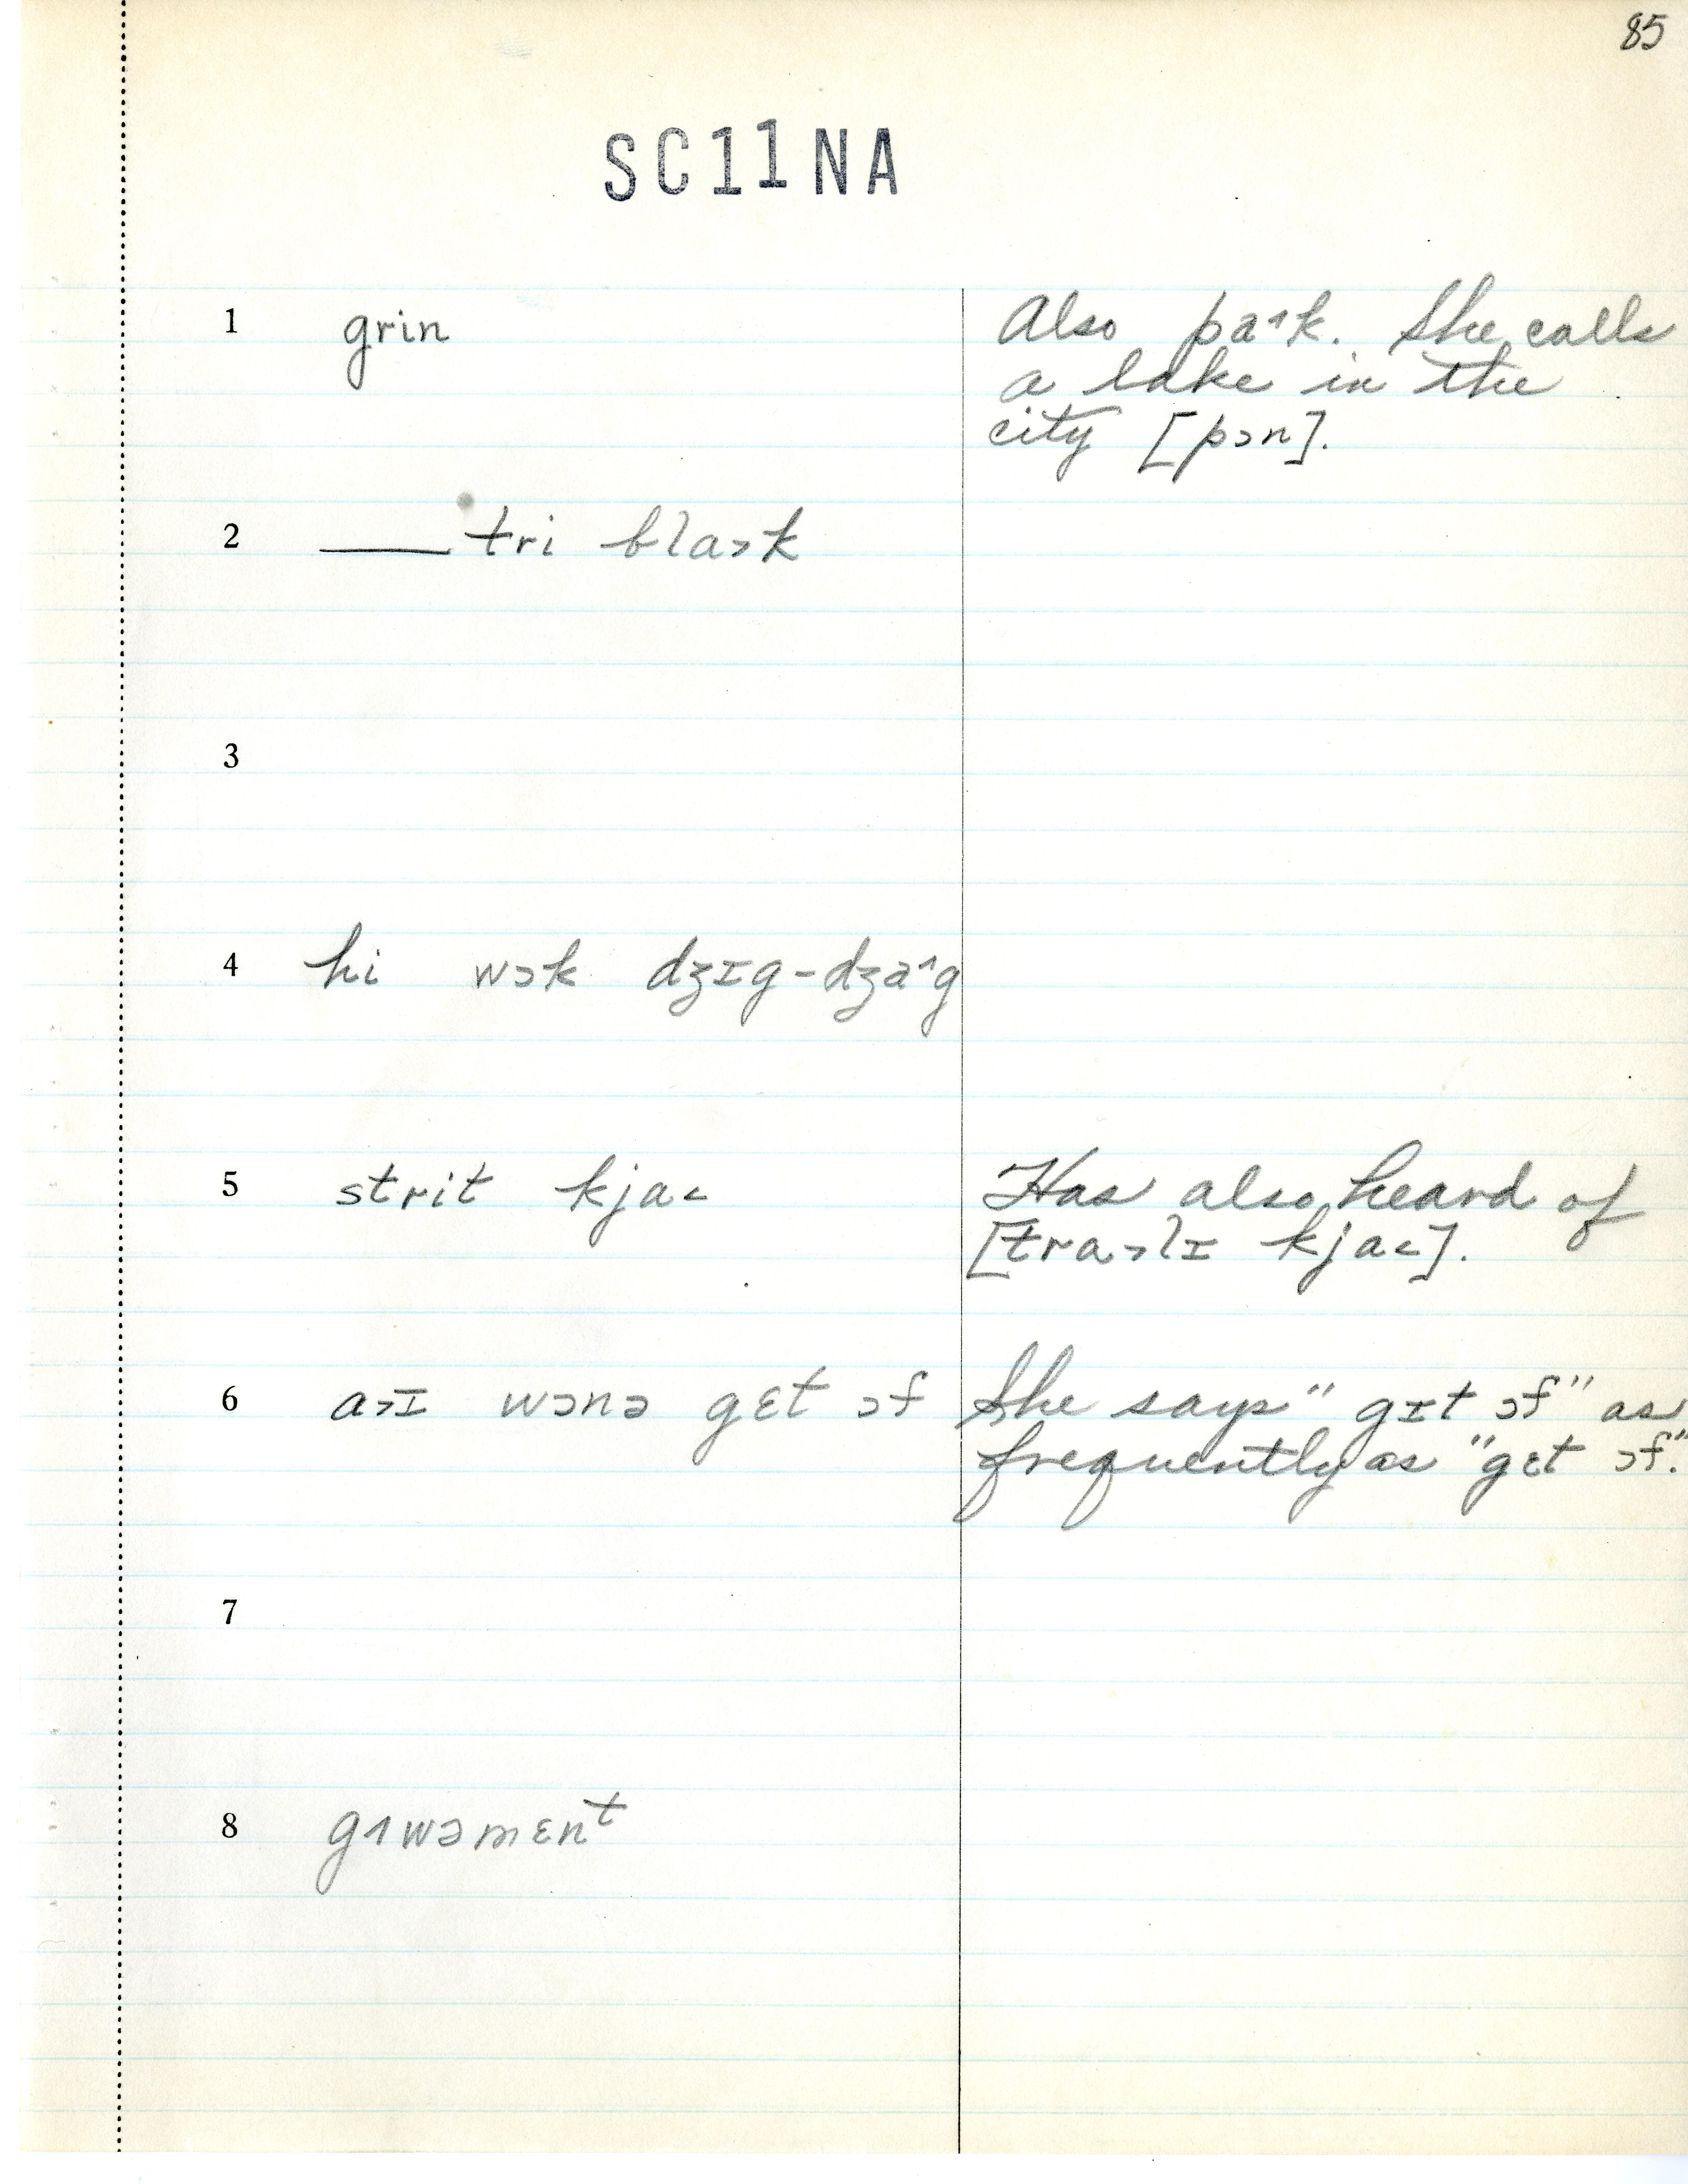 85
SC11NA
1 grin Also pa˄k. She calls
a lake in the
city [pɔn].
2 ____ tri bla˃k
3
4 hi wɔk dʒɪg-dʒa˄g
5 strit kja˂ Has also heard of
[tra˃lɪ kja˂].
6 a˃ɪ wɔnə gɛt ɔf She says "gɪt ɔf" as
frequently as "gɛt ɔf."
7
8 gɿwəmɛnᵗ